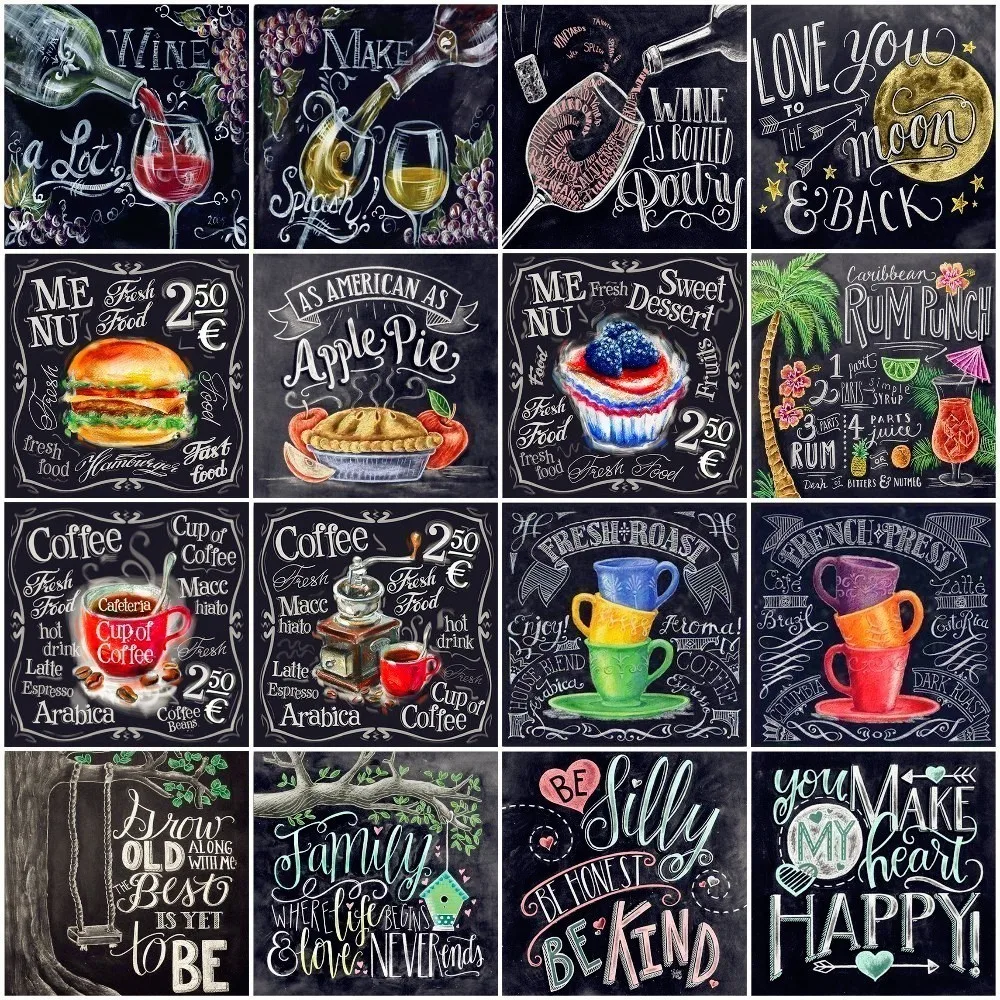 WINE
a Lot!
MAKE
Splash!
WINE
IS BOTTLED
Poetry
LOVE you
TO
THE
moon
& BACK
ME
NU
Fresh
Food
2 50
€
Fresh
Food
fresh
food
Hamburger
Fast
food
AS AMERICAN AS
Apple Pie
ME
NU
Fresh
Sweet
Dessert
Food
Fruits
Fresh
Food
fresh
food
Fresh Food
2 50
€
Caribbean
RUM PUNCH
1 part
2 PARTS simple
SYRUP
3 PARTS
RUM
4 PARTS
juice
OR
Dash of BITTERS & NUTMEG
Coffee
Cup of
Coffee
Fresh
Food
Macc
hiato
Cafeteria
Cup of
Coffee
hot
drink
Fresh
Latte
Espresso
Arabica
Coffee
Beans
2 50
€
Coffee
2 50
€
Fresh
Fresh
Food
Macc
hiato
hot
drink
Latte
Espresso
Fresh
Arabica
Cup of
Coffee
FRESH ROAST
Enjoy!
Aroma!
HOUSE BLEND
COFFEE
Arabica
FRENCH PRESS
Café
Latté
Brazil
Costa Rica
DARK ROAST
Grow
OLD ALONG
WITH ME
THE Best
IS YET
to BE
Family
WHERE life BEGINS
& love NEVER ends
BE Silly
BE HONEST
BE KIND
you MAKE
MY heart
HAPPY!